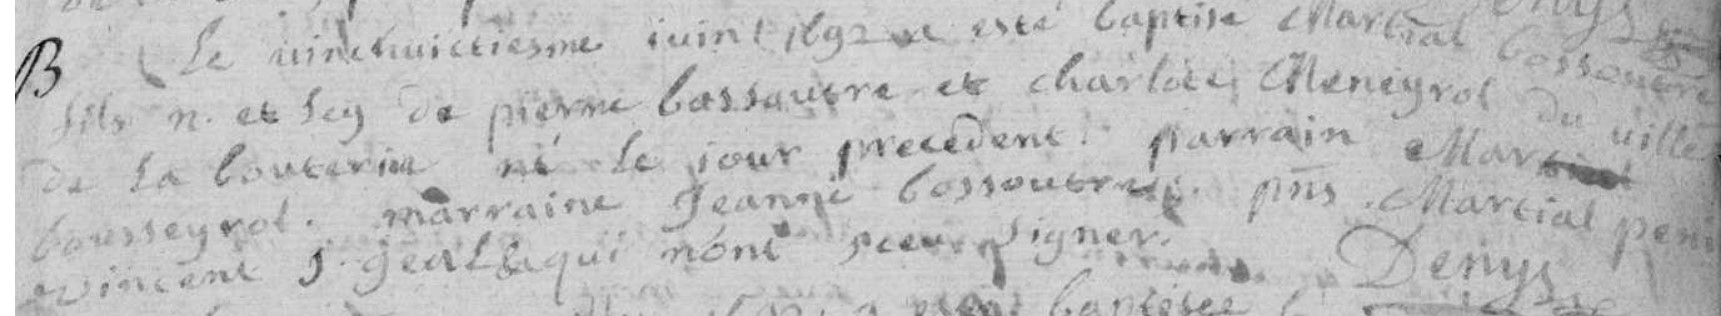 B Le vinthuictiesme iuint 1692 a esté baptise Martial bossoutre
fils n. et leg de pierre bossoutre et charlote Meneyrol du ville
de La bouterie né le jour precedent. parrain Martial
bousseyrol. marraine Jeanne bossoutre. pns Martial peni
vincent qui nont sceu signer. Denys
baptisée